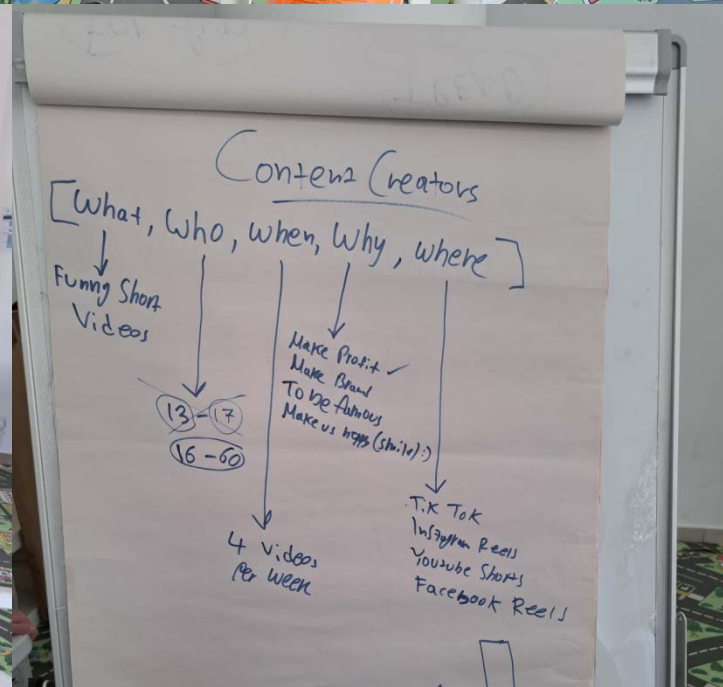 Content Creators
[What, Who, when, Why, where]
Funny Short
Videos
13-17
16-60
4 Videos
Per Week
Make Profit ✓
Make Brand
To be famous
Make us happy (smile) :)
Tik Tok
Instagram Reels
Youtube Shorts
Facebook Reels